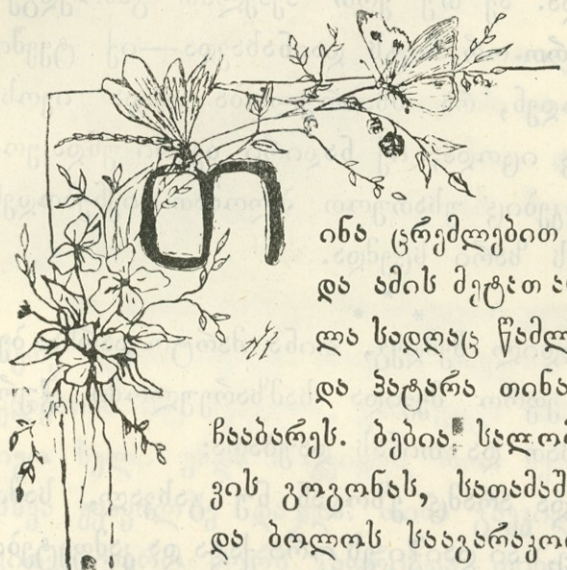 თინა ცრემლებით
და ამის მეტათ ა
ლა სადღაც წამლ
და პატარა თინა
ჩააბარეს. ბებია სალო
ვის გოგონას, სათამაშ
და ბოლოს სააგარაკო